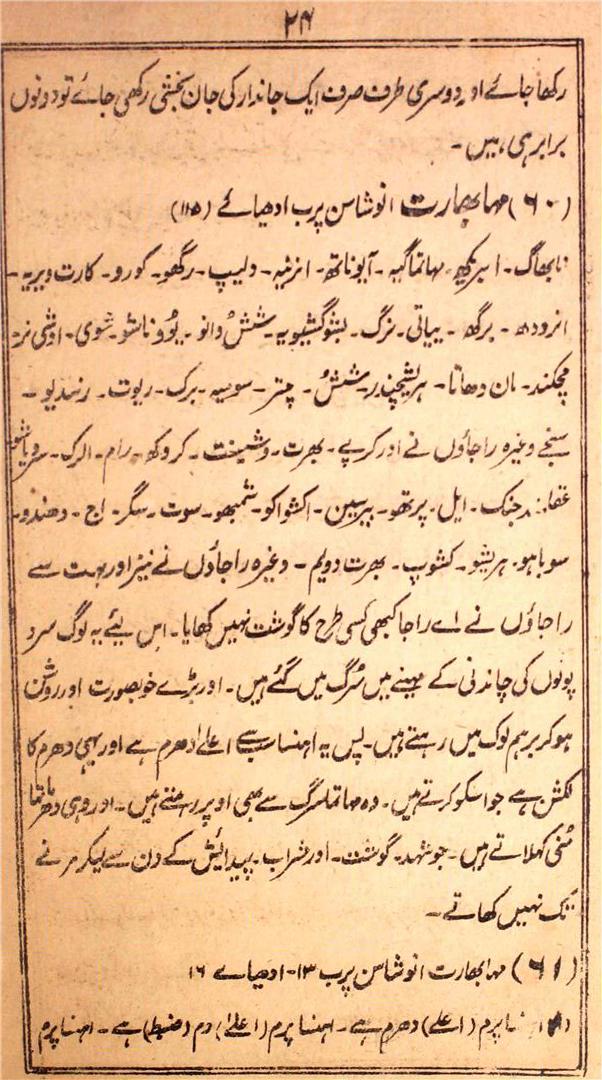 ۲۴
رکھا جائے اور دوسری طرف صرف ایک جاندار کی جان بخشی رکھی جائے تو دونوں
برابر ہی ہیں۔
(۶۰) مہابھارت انوشاسن پرب ادھیائے (۱۱۵)
نابھاگ۔ امبریکھ۔ مہاتما گیہ۔ آیوناتھ۔ انرنیہ۔ دلیپ۔ رگھو۔ کورو۔ کارت ویریہ۔
انرودھ۔ نرگھ۔ ییاتی۔ نرگ۔ بشوگشیویہ۔ شش وانو۔ یُوو ناشو۔ شوی۔ اوشی نر۔
مچکند۔ مان دھاتا۔ ہریشچندر۔ شش۔ چتر۔ سوسیہ۔ برک۔ ریوت۔ رنیدیو۔
سنجے وغیرہ راجاؤں نے اور کرپے۔ بھرت۔ وشیخت۔ کروکھ۔ رام۔ الرک۔
جنک۔ ایل۔ پرتھو۔ بیرسین۔ اکشواکو۔ شمبھو۔ سوت۔ سگر۔ اج۔ دھندو۔
سوباہو۔ ہریشو۔ کشوپ۔ بھرت دولم۔ وغیرہ راجاؤں نے نیز اور بہت سے
راجاؤں نے اے راجا کبھی کسی طرح کا گوشت نہیں کھایا۔ اس لیئے یہ لوگ سرد
پونوں کی چاندنی کے مہینے میں سُرگ میں گئے ہیں۔ اور بڑے خوبصورت اور روشن
ہو کر برہم لوک میں رہتے ہیں۔ پس یہ اہنسا سب سے اعلےٰ دھرم ہے اور یہی دھرم کا
لکشن ہے جو اسکو کرتے ہیں۔ وہ مہاتما سرگ سے بھی اوپر رہتے ہیں۔ اور وہی دھرماتما
مُنی کہلاتے ہیں۔ جو شہد۔ گوشت۔ اور شراب۔ پیدائش کے دن سے لیکر مرنے
تک نہیں کھاتے۔
(۶۱) مہابھارت انوشاسن پرب ۱۳۔ ادھیائے ۱۶
اہنسا پرم (اعلےٰ) دھرم ہے۔ اہنسا پرم (اعلےٰ) دم (ضبط) ہے۔ اہنسا پرم